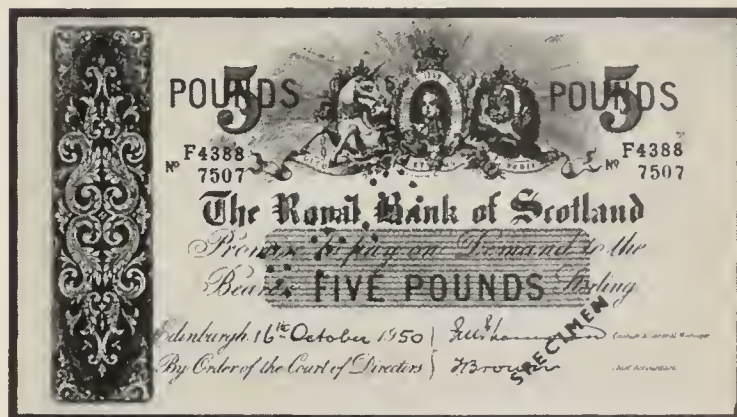 5 POUNDS 5 POUNDS
Nº F4388 7507 Nº F4388 7507
The Royal Bank of Scotland
Promise to pay on Demand to the
Bearer FIVE POUNDS Sterling
Edinburgh 16th October 1950
By Order of the Court of Directors
SPECIMEN